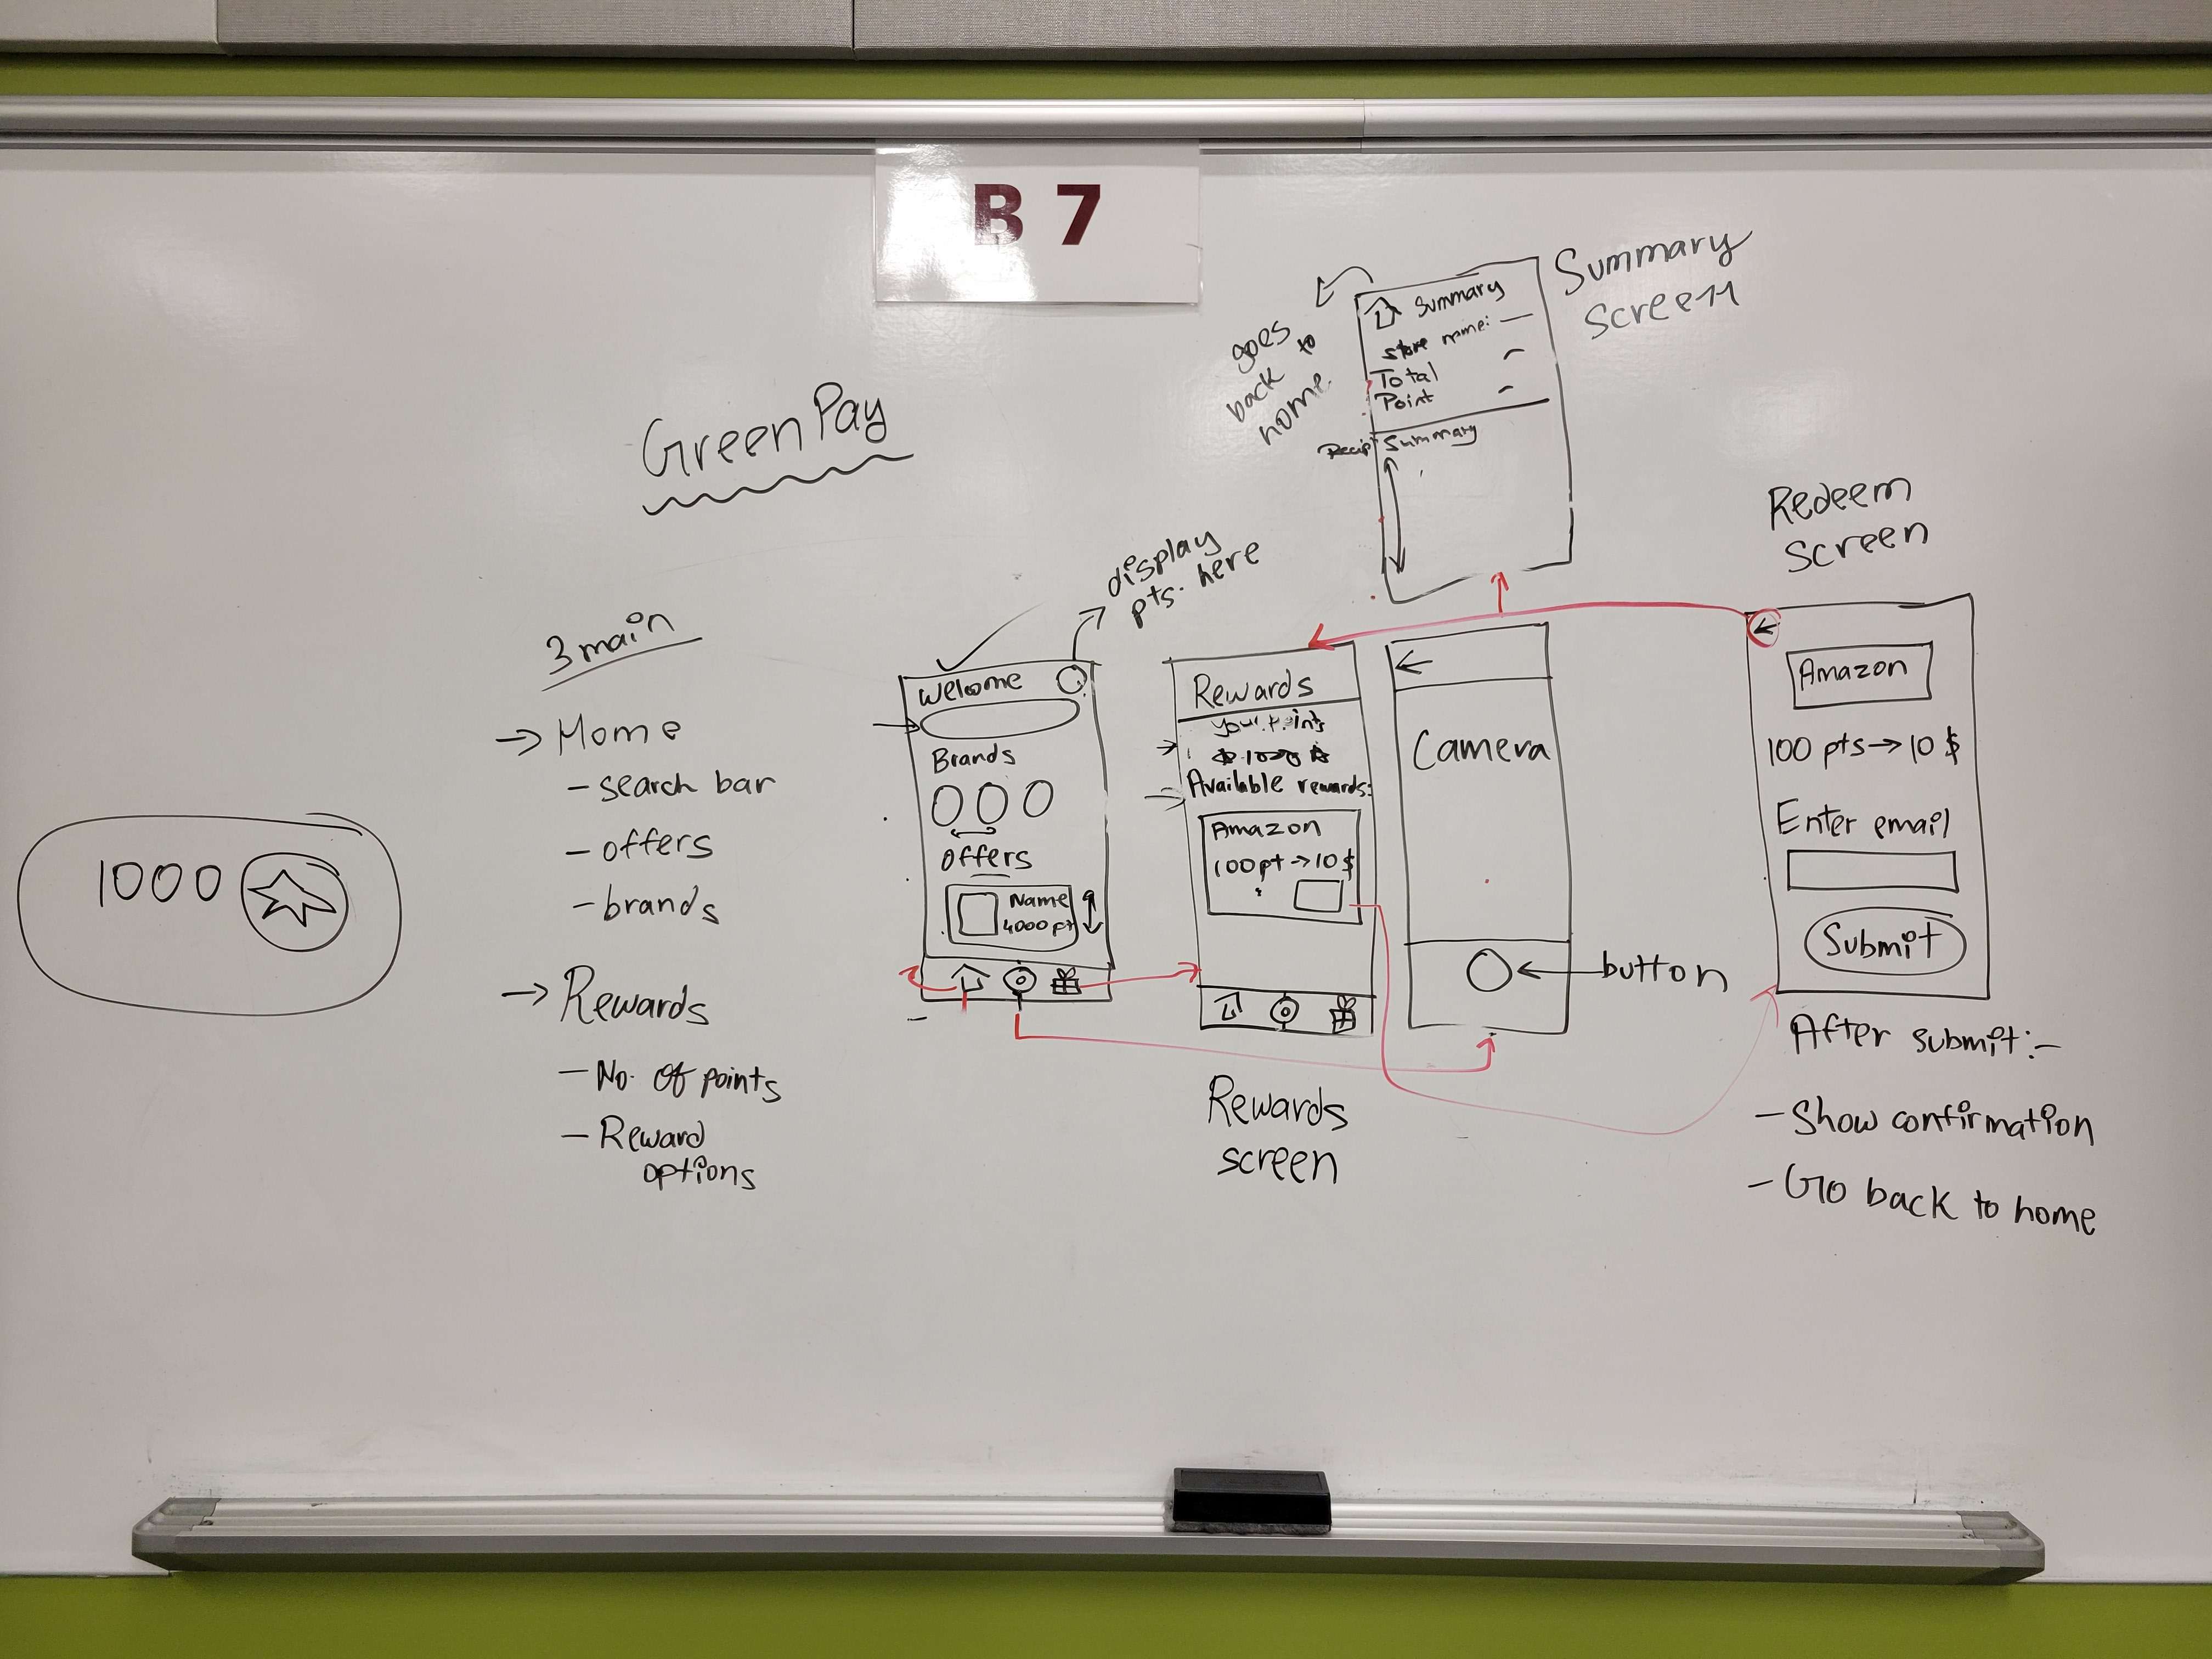 B 7
GreenPay
3 main
→ Home
- search bar
- offers
- brands
→ Rewards
- No. of points
- Reward
options
1000
display
pts. here
Welcome
Brands
Offers
Name
4000 pt
Rewards
Your Points
1000
Available rewards:
Amazon
100pt → 10 $
Rewards
screen
goes
back to
home.
Summary
Store name: —
Total
Point
Recip Summary
Summary
Screen
←
Camera
← button
Redeem
Screen
←
Amazon
100 pts → 10 $
Enter email
Submit
After submit:-
- Show confirmation
- Go back to home